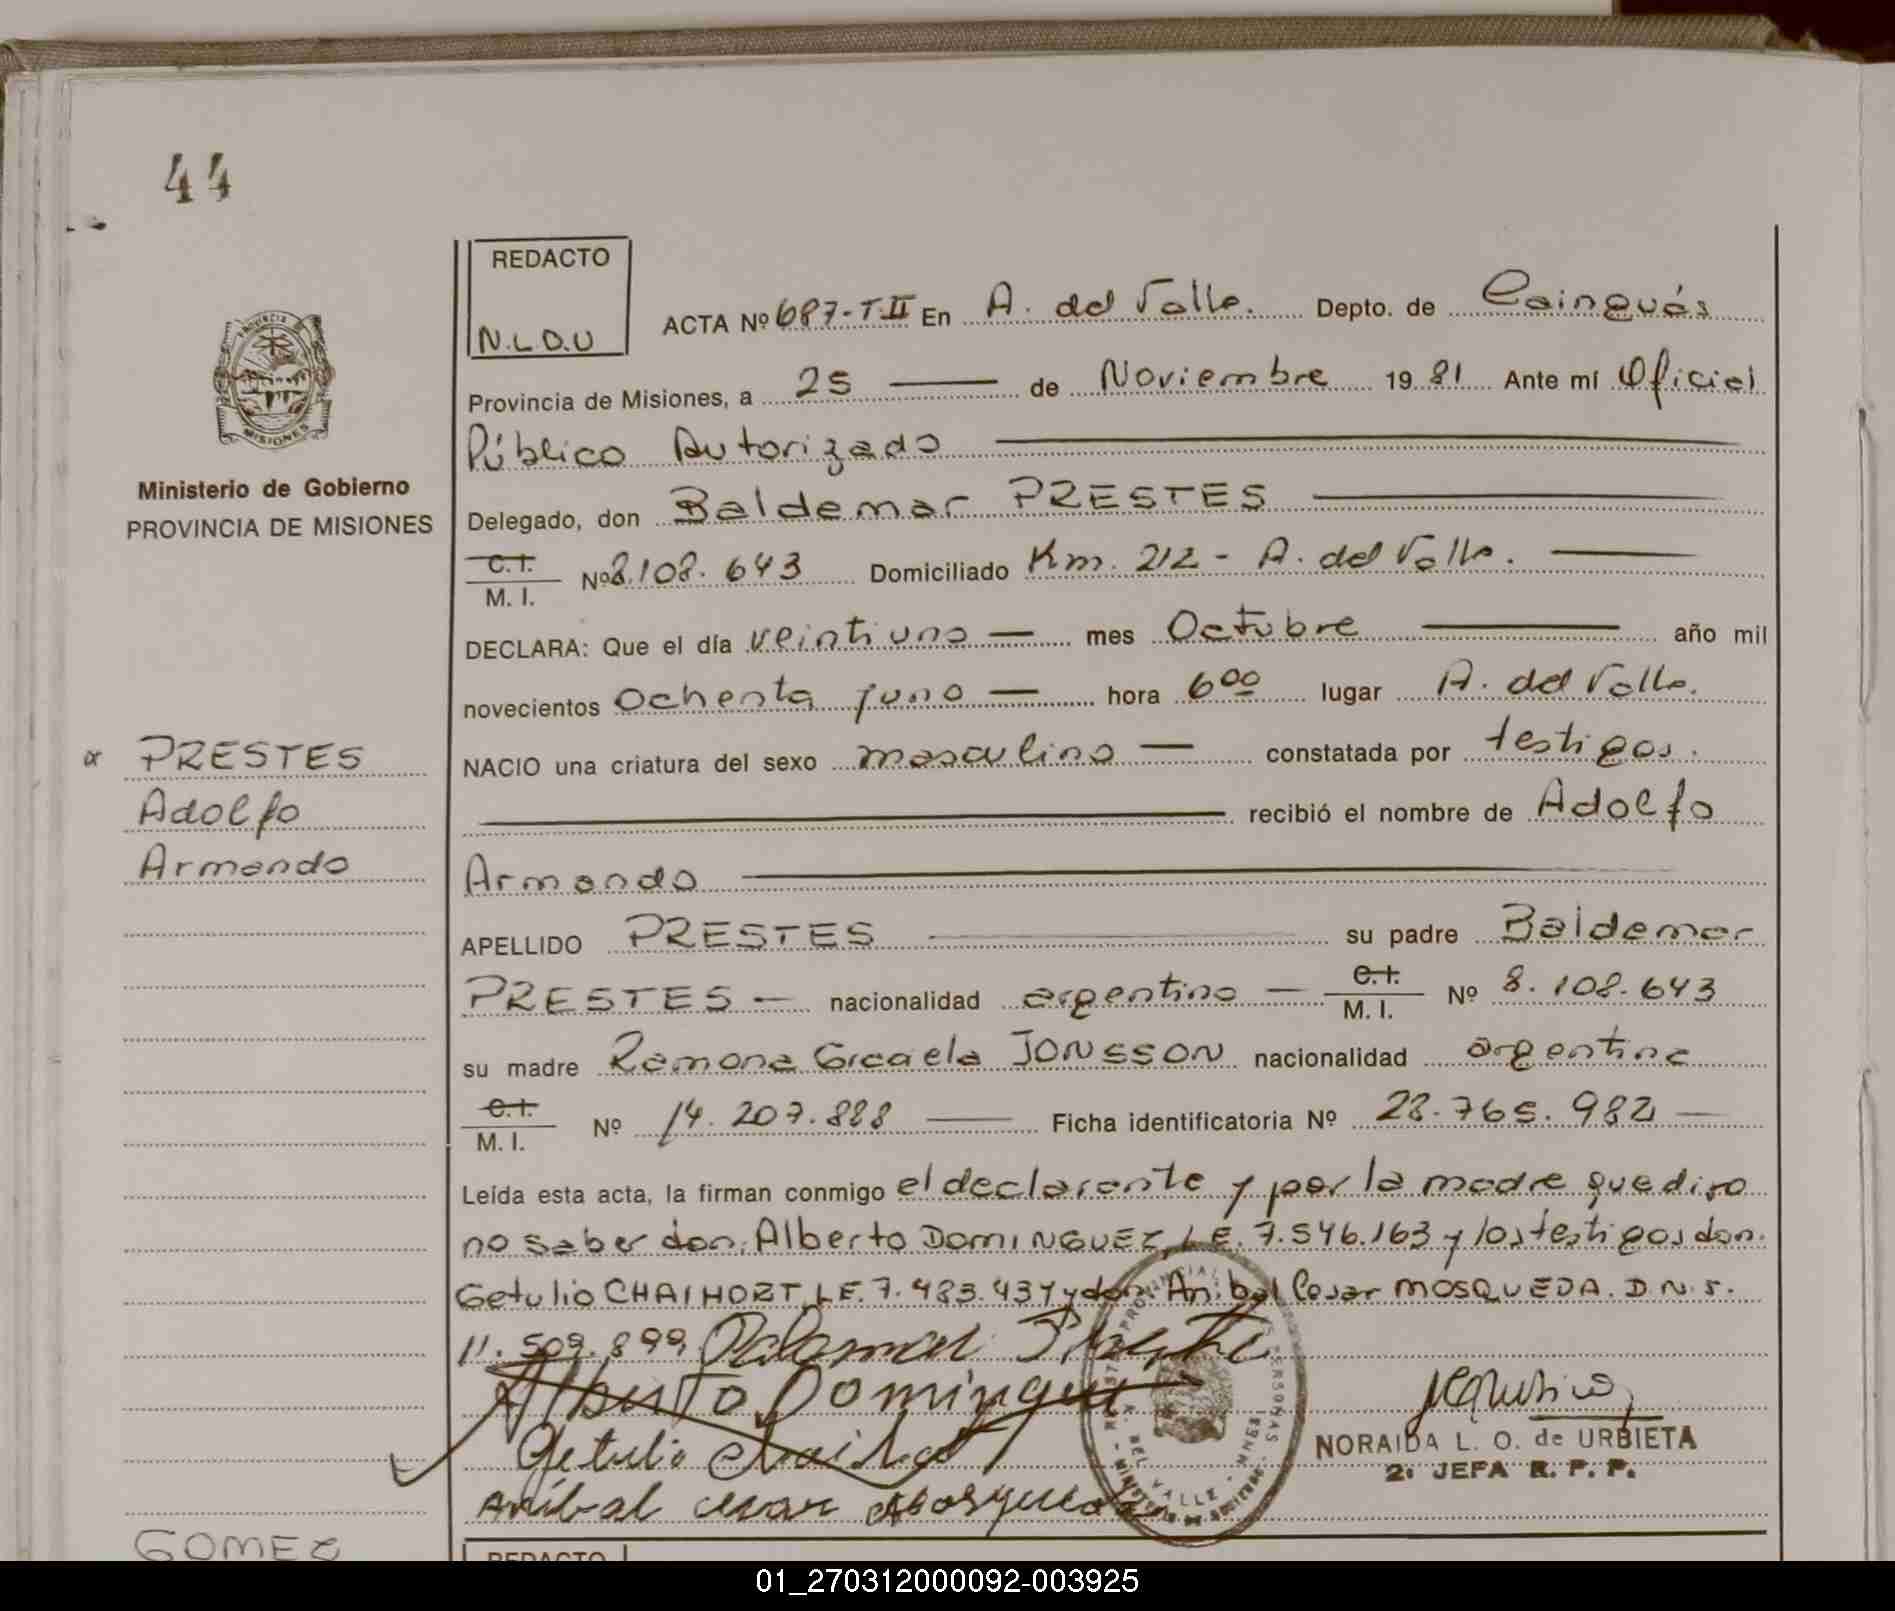 44
REDACTO
N.L.O.U
ACTA Nº 687-T.II En A. del Valle. Depto. de Cainguás
Provincia de Misiones, a 25 — de Noviembre 19 81 Ante mí Oficial
Público Autorizado
PROVINCIA
MISIONES
Ministerio de Gobierno
PROVINCIA DE MISIONES
Delegado, don Baldemar PRESTES
C.I. M. I. Nº 8.108.643 Domiciliado Km. 212 - A. del Valle.
DECLARA: Que el día veintiuno — mes Octubre — año mil
novecientos ochenta y uno — hora 6 00 lugar A. del Valle.
PRESTES
Adolfo
Armando
NACIO una criatura del sexo masculino — constatada por testigos.
recibió el nombre de Adolfo
Armando
APELLIDO PRESTES su padre Baldemar
PRESTES — nacionalidad argentino — C.I. M. I. Nº 8.108.643
su madre Ramona Gicaela JONSSON nacionalidad argentina
C.I. M. I. Nº 14.207.888 — Ficha identificatoria Nº 28.765.982 —
Leída esta acta, la firman conmigo el declarante y por la madre que dijo
no saber don: Alberto DOMINGUEZ, L.E. 7.546.163 y los testigos don.
Getulio CHAIHORT L.E. 7.483.434 y don. Anibal Cesar MOSQUEDA. D.N.I.
11.509.899
Alberto Domingue
Getulio
Aníbal cesar Mosqueda
NORAIDA L. O. de URBIETA
2ı JEFA R. P. P.
GOMEZ
REDACTO
01_270312000092-003925